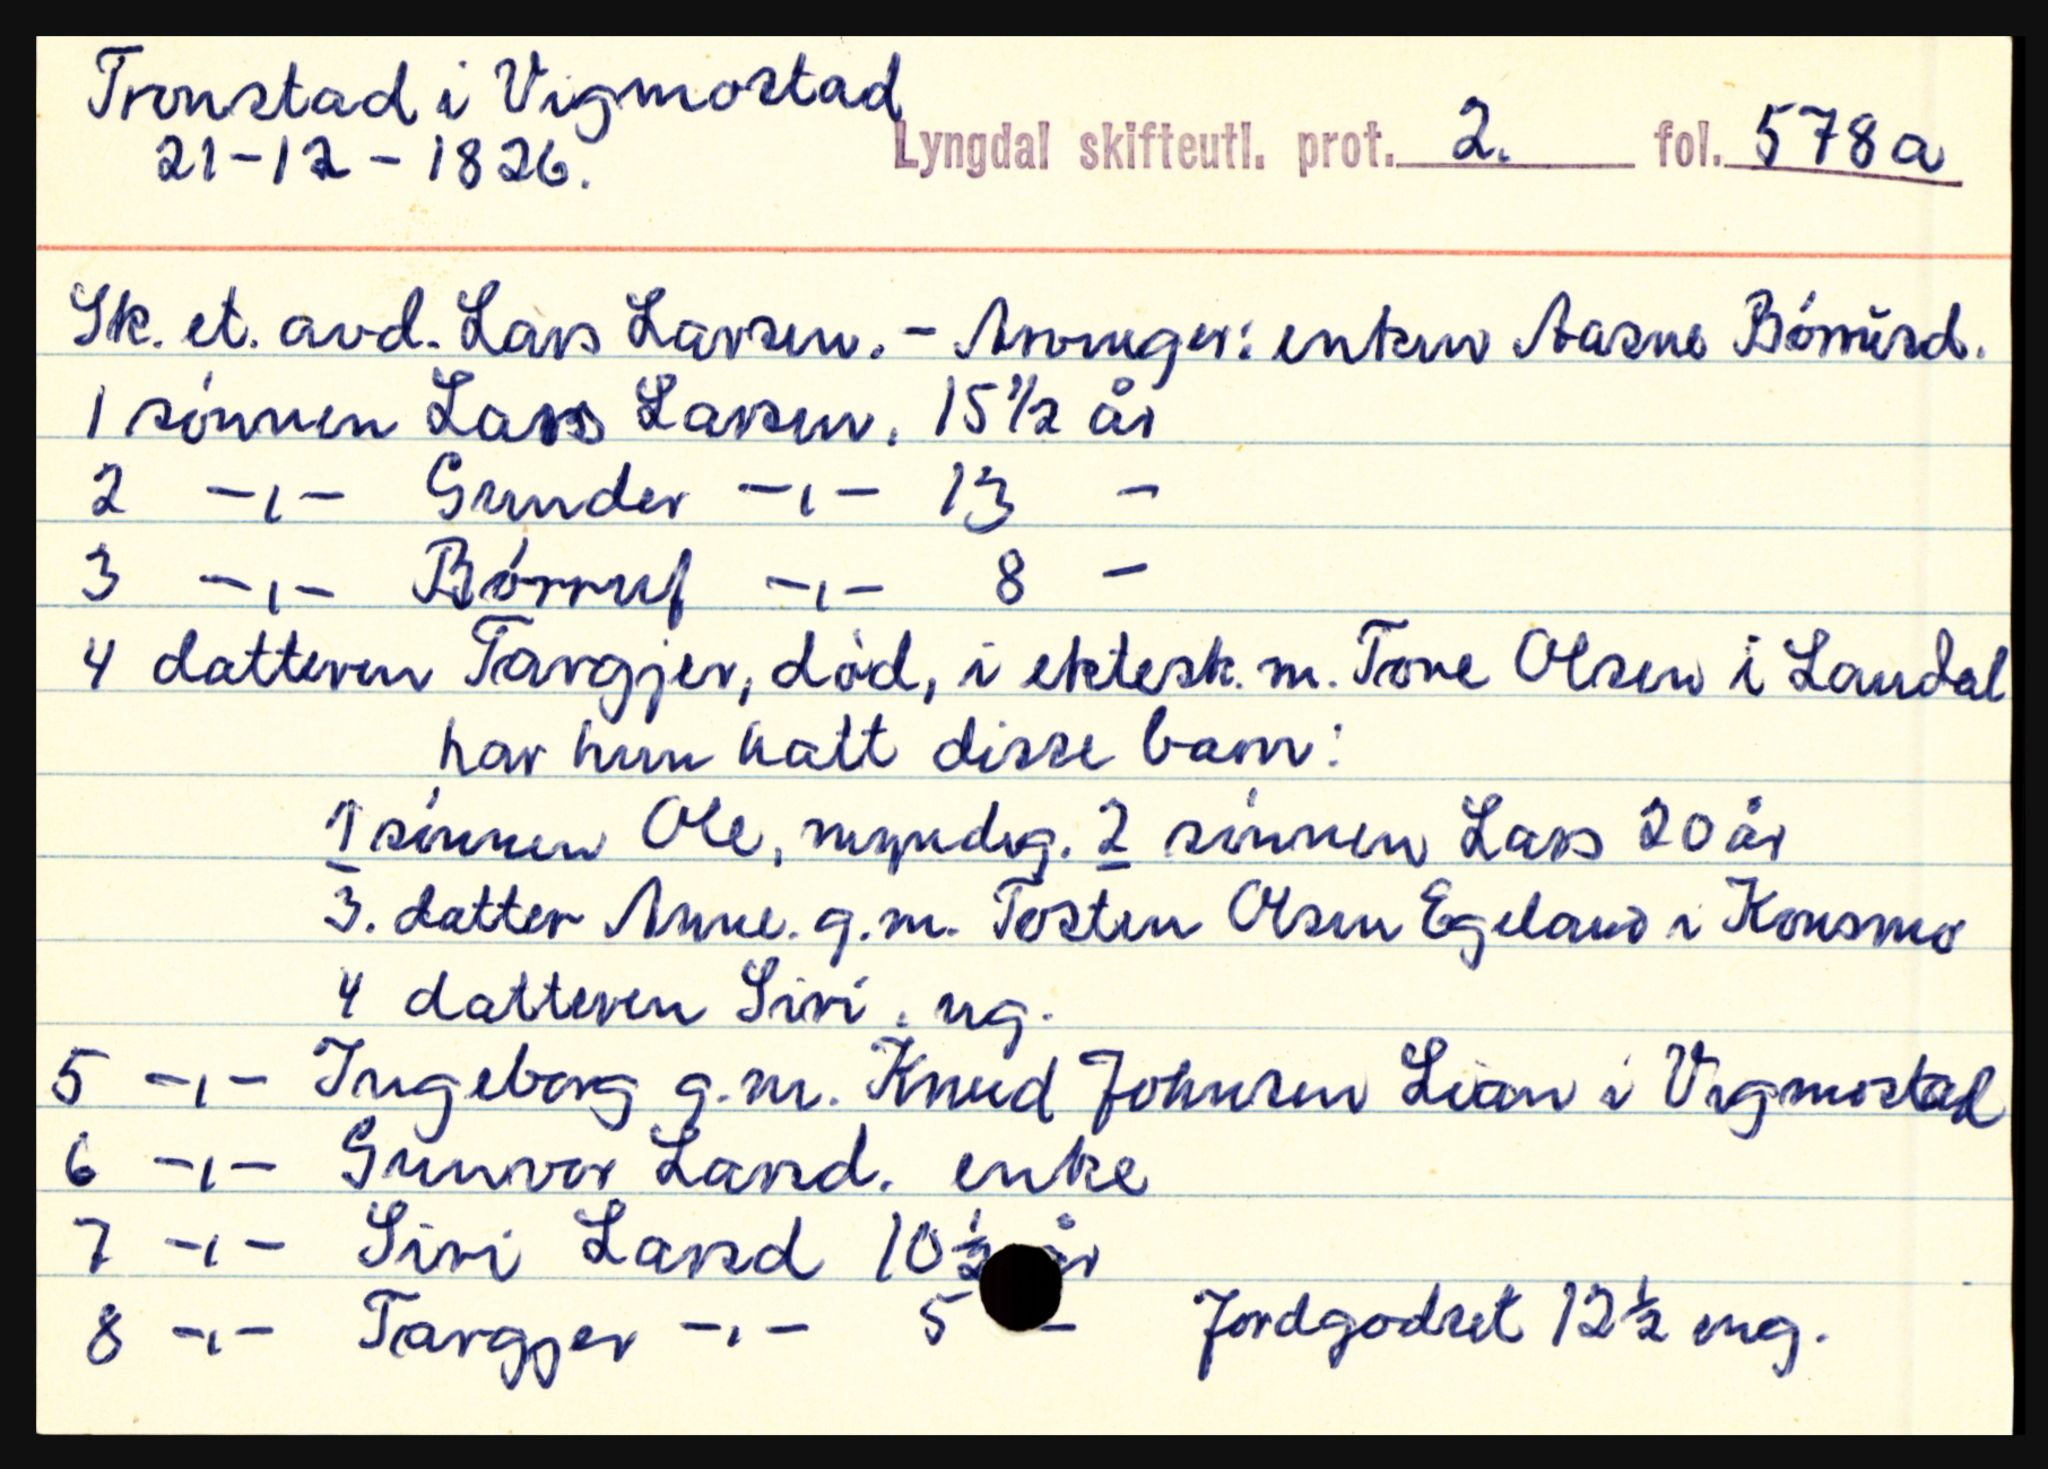 Tronstad i Vigmostad
21-12-1826.
Lyngdal skifteutl. prot. 2. fol. 578a
Sk. et. avd. Lars Larsen. - Arvinger: enken Aasne Börrüsd.
1 sönnen Lars Larsen. 15 1/2 år
2 -,- Gunder -,- 13 -
3 -,- Börruf -,- 8 -
4 datteren Targjer, död, i ektesk. m. Tore Olsen i Laudal
har hun hatt disse barn:
1 sönnen Ole, myndig. 2 sönnen Lars 20 år
3. datter Anne. g.m. Tosten Olsen Egeland i Konsmo
4 datteren Siri. ug.
5 -,- Ingeborg g.m. Knud Johnsen Lian i Vigmostad
6 -,- Gunvor Larsd. enke
7 -,- Siri Larsd 10 1/2 år
8 -,- Targjer -,- 5 - Jordgodset 12 1/2 eng.